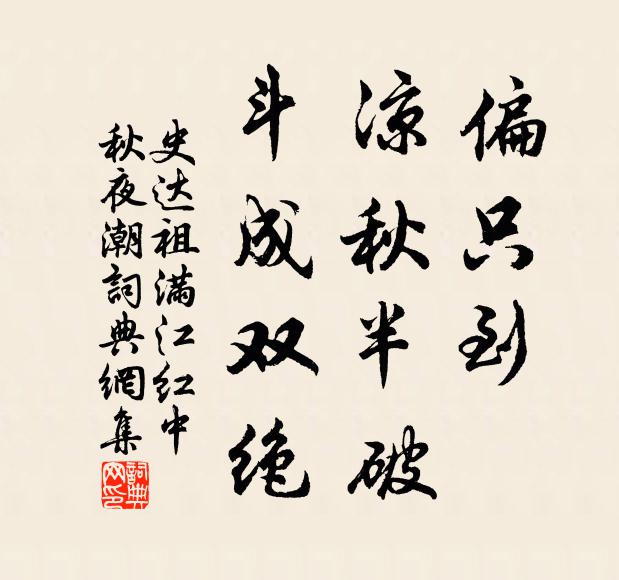 偏只到
凉秋半破
斗成双绝
史达祖满江红中
秋夜潮詞典網集
詞典网印